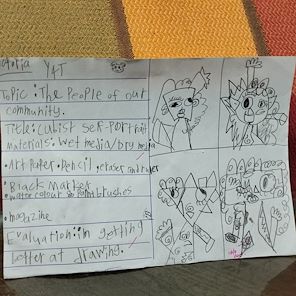 Victoria Y4T
Topic: The People of our
community.
Title: Cubist Self-Portrait
materials: wet media/Dry media
• Art Paper • Pencil, eraser and ruler
• Black Marker
• water colour • Paint brushes
• magazine
Evaluation: im getting
better at drawing.